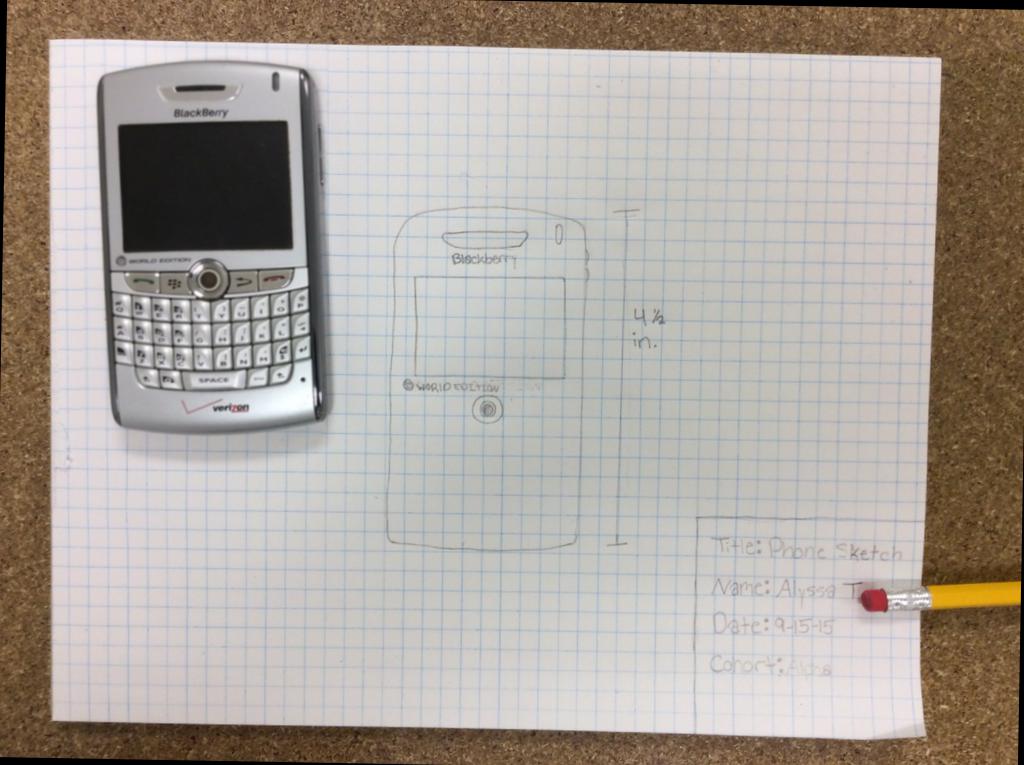 BlackBerry
WORLD EDITION
SPACE
verizon
Blackberry
WORLD EDITION
4 ½
in.
Title: Phone Sketch
Name: Alyssa
Date: 9-15-15
Cohort: Alpha